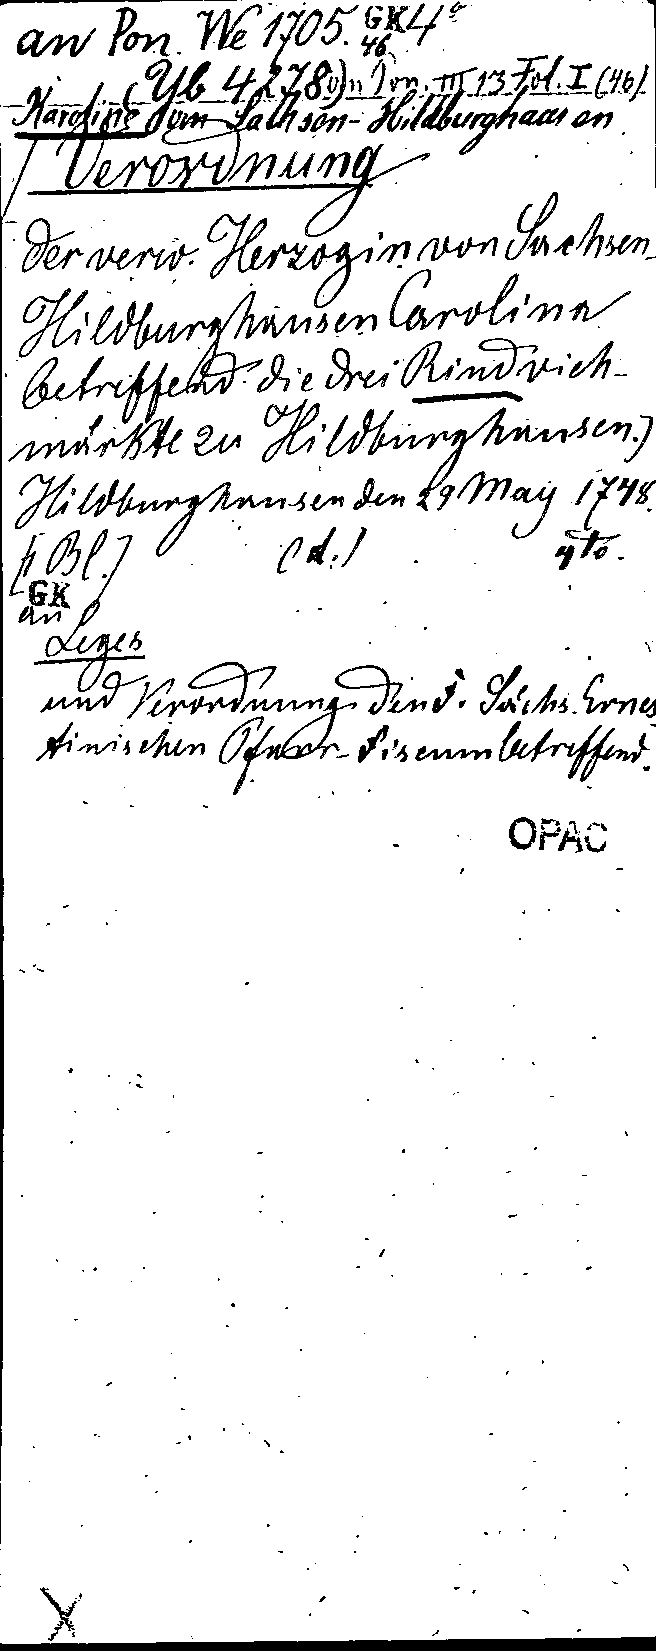 an Pon. We 1705. GK 4°
46
(Yb 4278 an Pon. III 13 Fol. I (46)
Karoline von Sachsen-Hildburghausen
Verordnung
der verw. Herzogin von Sachsen-
Hildburghausen Carolina
betreffend die drei Rindvieh-
märkte zu Hildburghausen.]
Hildburghausen den 29 May 1748.
[1 Bl.] (d.) 4to.
GK
an
Leges
und Verordnung den F. Sächs. Ernes
tinischen Pfarr-Fiscum betreffend.
OPAC
X